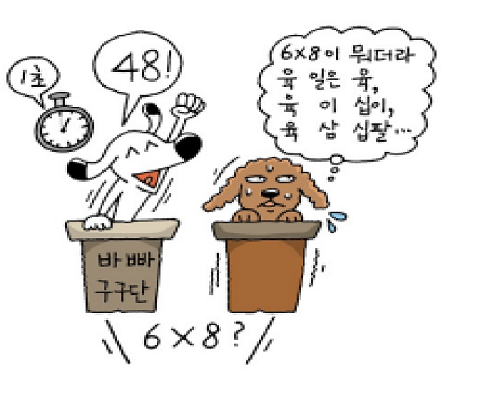 1초
48!
6×8이 뭐더라
육 일은 육,
육 이 십이,
육 삼 십팔...
바빠
구구단
6×8?